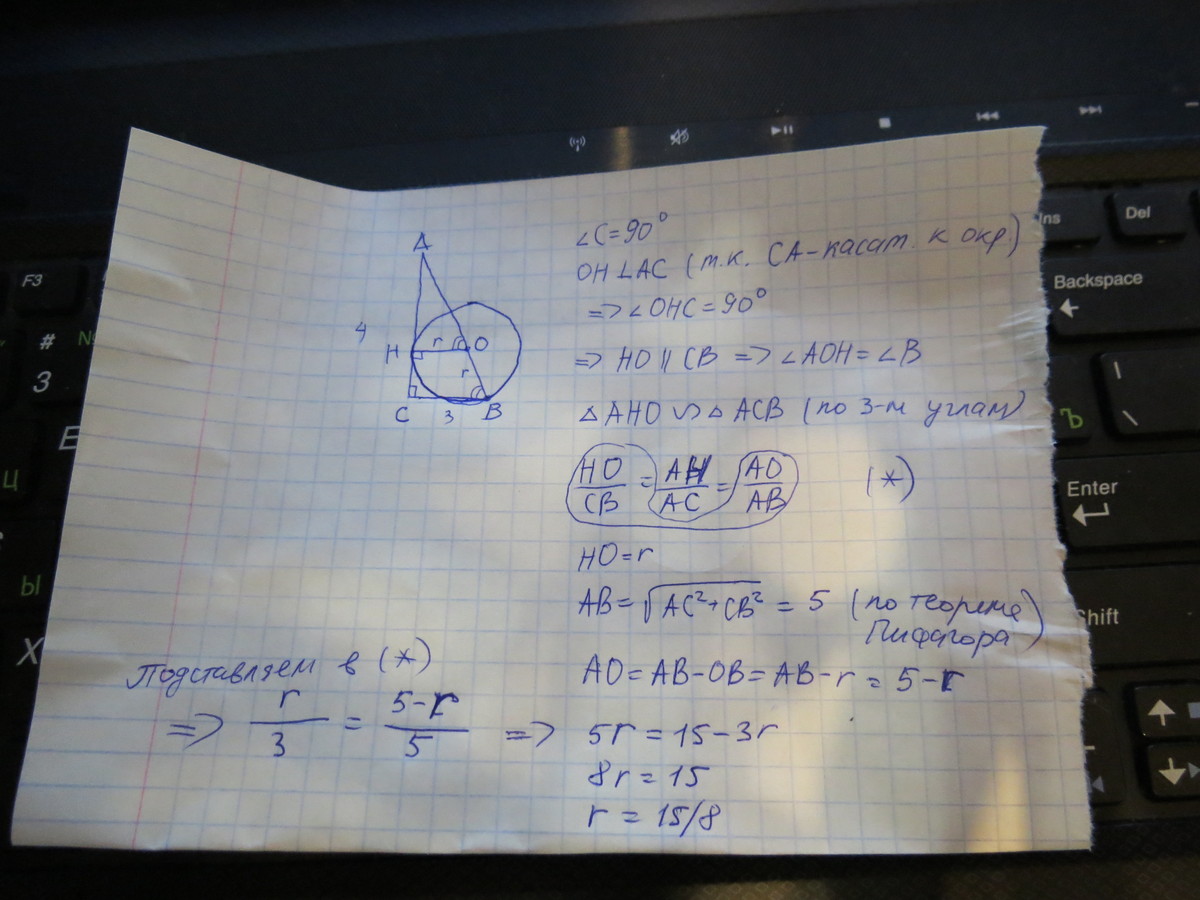 A
4
H
r
O
r
C
3
B
∠C=90°
OH∠AC (т.к. CA-касат. к окр.)
=> ∠OHC=90°
=> HO || CB => ∠AOH=∠B
△AHO ∽ △ACB (по 3-м углам)
HO/CB = AH/AC = AO/AB (*)
HO=r
AB=√AC²+CB² = 5 (по теореме Пифагора)
AO=AB-OB=AB-r=5-r
Подставляем в (*)
=> r/3 = 5-r/5 => 5r=15-3r
8r=15
r=15/8
F3
#
3
Ц
Ы
X
Ins
Del
Backspace
Ъ
\
Enter
Shift